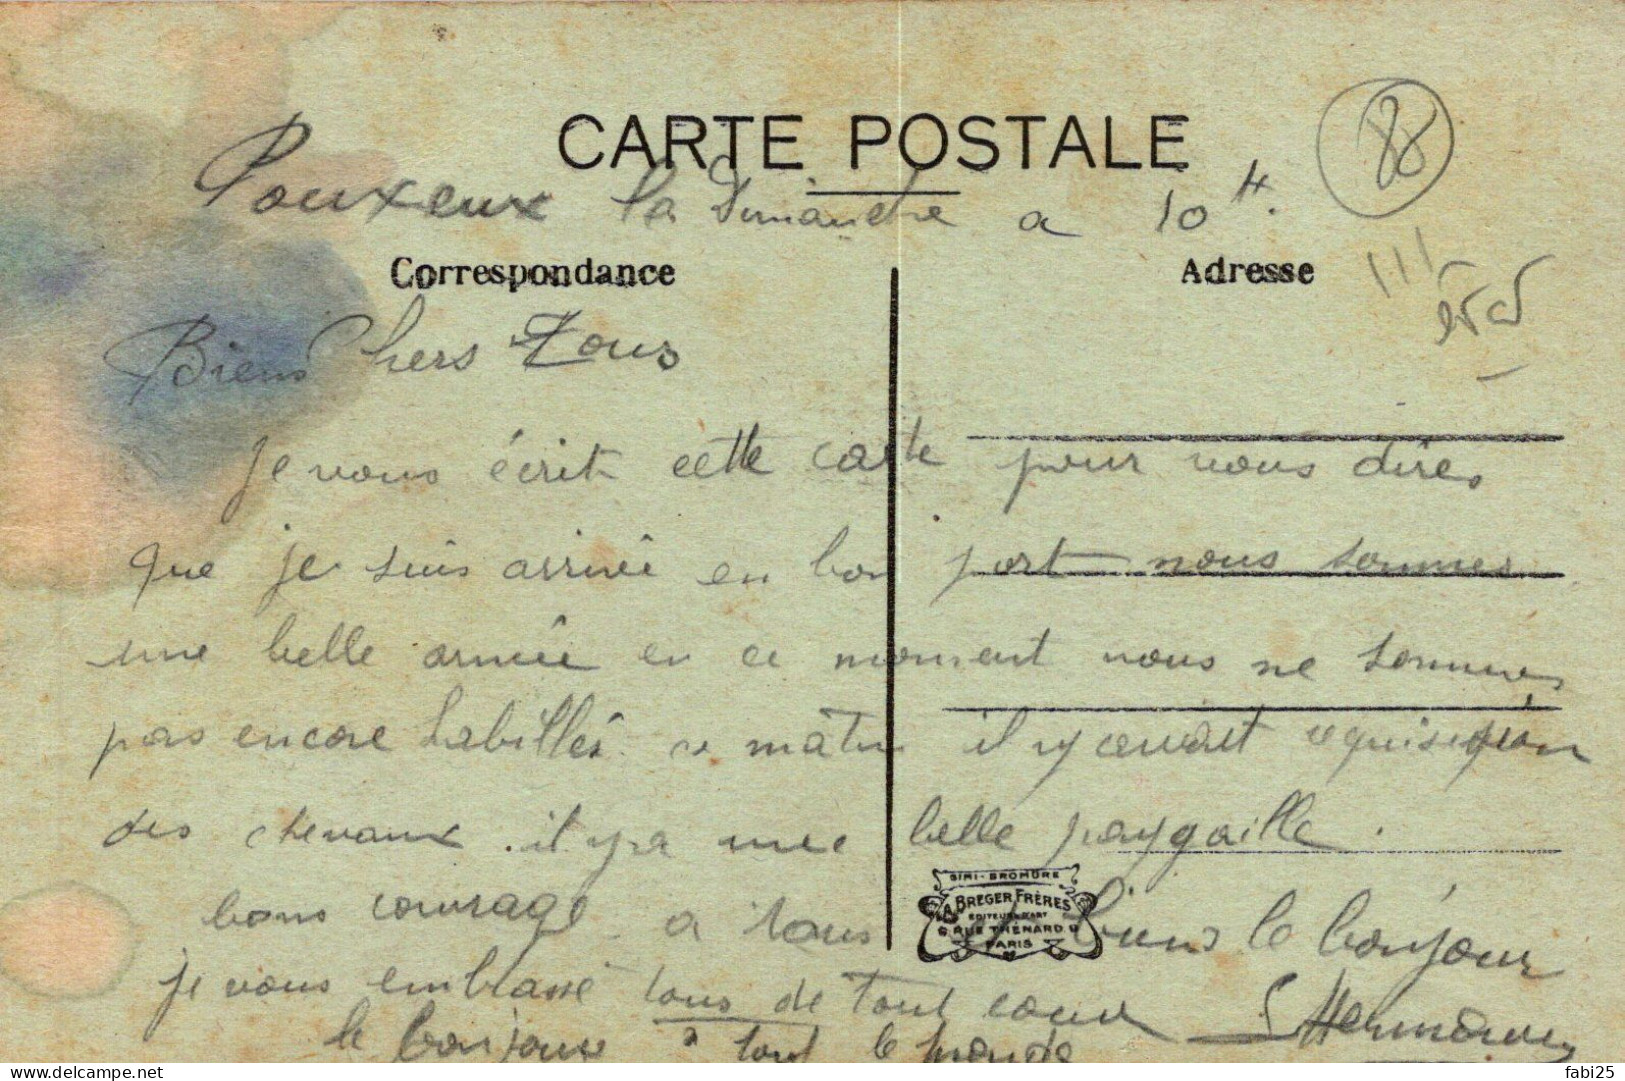 CARTE POSTALE
88
Pouxeux la Dimanche a 10 H.
Correspondance
Adresse
111
Biens Chers Tous
Je vous écrit cette carte pour vous dires
que je suis arrivé en bon port nous sommes
une belle armée en ce moment nous ne sommes
pas encore habillés ce matin il y avait réquisition
des chevaux . il y a une belle paygaille .
bons courage a tous et biens le bonjour
je vous embrasse tous de tout coeur
le bonjour à tout le monde
SIMI-BROMURE
A. BREGER FRÈRES
EDITEURS D'ART
9 RUE THÉNARD 9
PARIS
fabi25